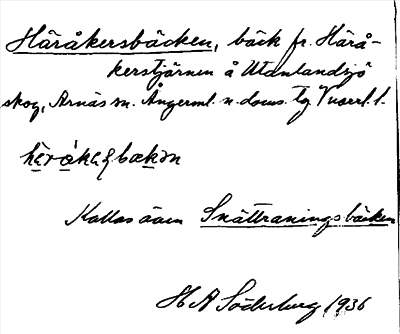 Häråkersbäcken, bäck fr. Härå-
kerstjärnen å Utanlandsjö
skog, Arnäs sn. Ångerml. n. doms. tg
Kallas även Snättraningsbäcken
H A Söderberg 1936